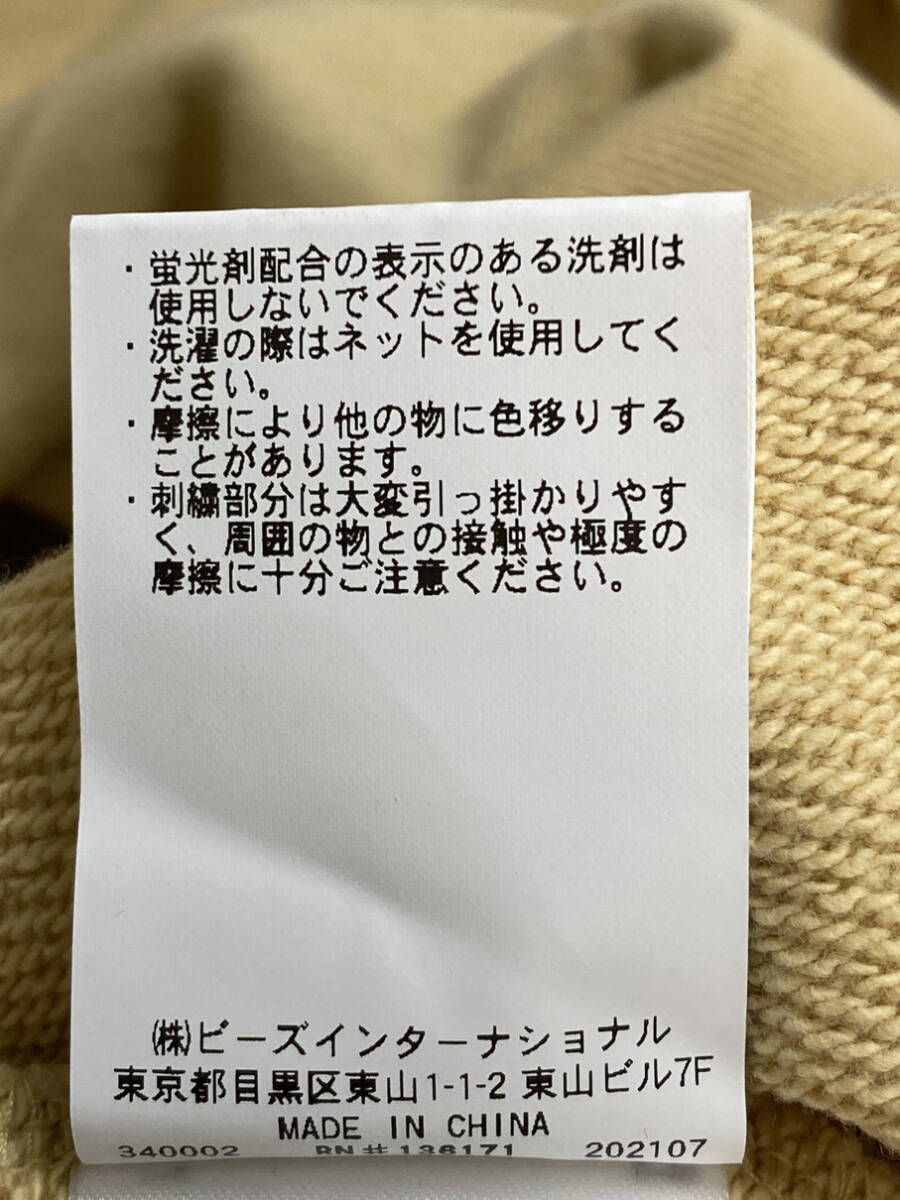 ・蛍光剤配合の表示のある洗剤は
使用しないでください。
・洗濯の際はネットを使用してく
ださい。
・摩擦により他の物に色移りする
ことがあります。
・刺繍部分は大変引っ掛かりやす
く、周囲の物との接触や極度の
摩擦に十分ご注意ください。
㈱ビーズインターナショナル
東京都目黒区東山1-1-2 東山ビル7F
MADE IN CHINA
340002 RN#138171 202107